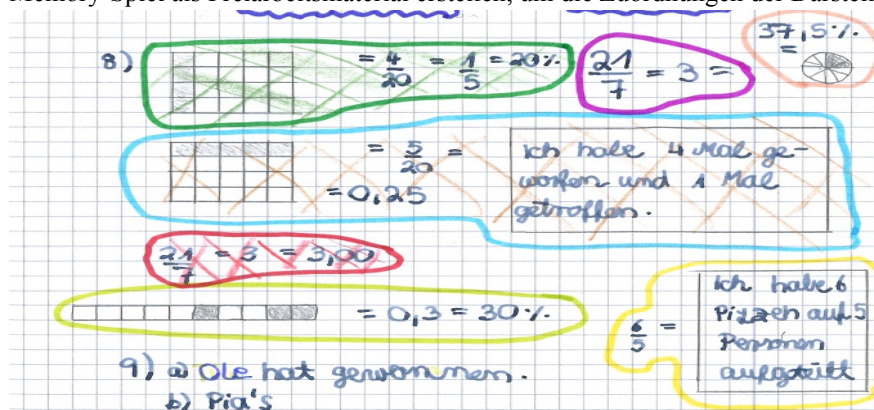 Memory-Spiel als Freiarbeitsmaterial erstellen, um die Zuordnungen der Darstell
37,5% =
8) = 4/20 = 1/5 = 20%
21/7 = 3 =
= 5/20 =
= 0,25
Ich habe 4 Mal ge-
worfen und 1 Mal
getroffen.
21/7 = 3 = 3,00
= 0,3 = 30%
6/5 =
Ich habe 6
Pizzen auf 5
Personen
aufgeteilt
9) a) Ole hat gewonnen.
b) Pia's